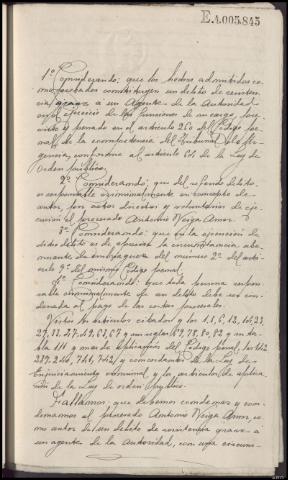 E.4.005.845
1º Considerando: que los hechos admitidos co-
mo probados constituyen un delito de resisten-
cia grave a un Agente de la Autoridad
en el ejercicio de las funciones de su cargo, pre-
visto y penado en el artículo 260 del Código pe-
nal de la competencia del Tribunal de Ur-
gencia, conforme al artículo 64 de la Ley de
Orden público.
2º Considerando: que del referido delito,
es responsable criminalmente en concepto de
autor, por actos directos y voluntarios de eje-
cución el procesado Antonio Veiga Amor.
3º Considerando: que en la ejecución de
dicho delito es de apreciar la circunstancia ate-
nuante de embriaguez del número 2º del artí-
culo 9º del mismo Código penal.
4º Considerando: que toda persona respon-
sable criminalmente de un delito debe ser con-
denada al pago de las costas procesales.
Vistos los artículos citados y los 1, 6, 12, 14, 23
27, 33, 47, 49, 63, 67 y sus reglas, 69, 78, 80, 82 y su ta-
bla 114 y demás aplicación del Código penal, los 142
239, 240, 741, 742, y concordantes de la Ley de
Enjuiciamiento criminal y los artículos de aplica-
ción de la Ley de orden público.
Fallamos: que debemos condenar y con-
denamos al procesado Antonio Veiga Amor, co-
mo autor de un delito de resistencia grave a
un agente de la Autoridad, con una circuns-